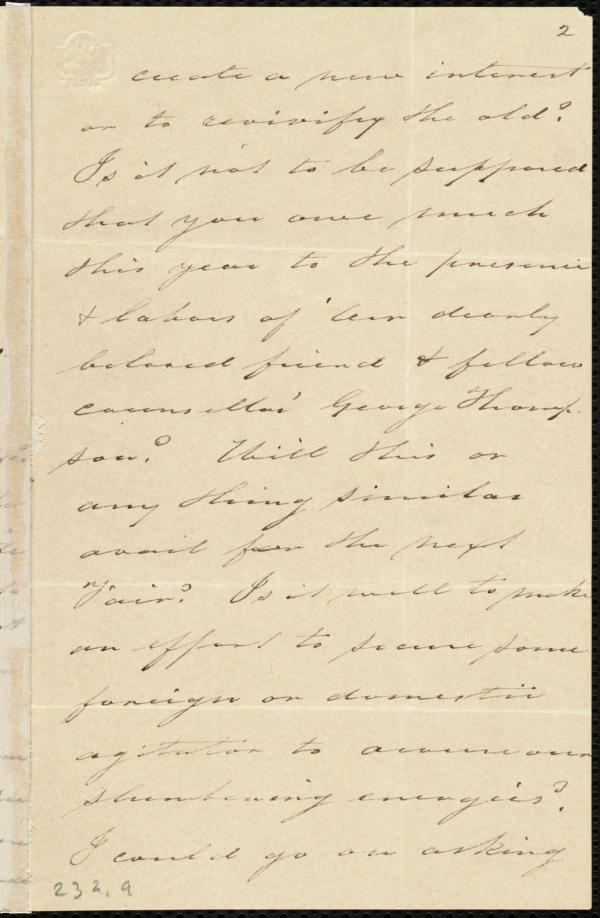 2
create a new interest
or to revivify the old?
Is it not to be supposed
that you owe much
this year to the presence
& labors of our dearly
beloved friend & fellow
counsellor George Thomp-
son? Will this or
any thing similar
avail for the next
Fair? Is it well to make
an effort to secure some
foreign or domestic
agitator to arouse our
slumbering energies?
I could go on asking
232.9